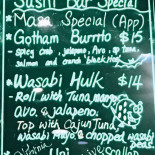 Sushi Bar Special
Masa Special (App)
Gotham Burrito $15
- spicy crab, jalapeno, Avo, sp Tuna,
salmon and crunch, black
Wasabi Hulk $14
Roll with Tuna, mango,
avo, & jalapeno.
Top with Cajun Tuna,
wasabi Mayo & chopped wasabi
peas
Uni